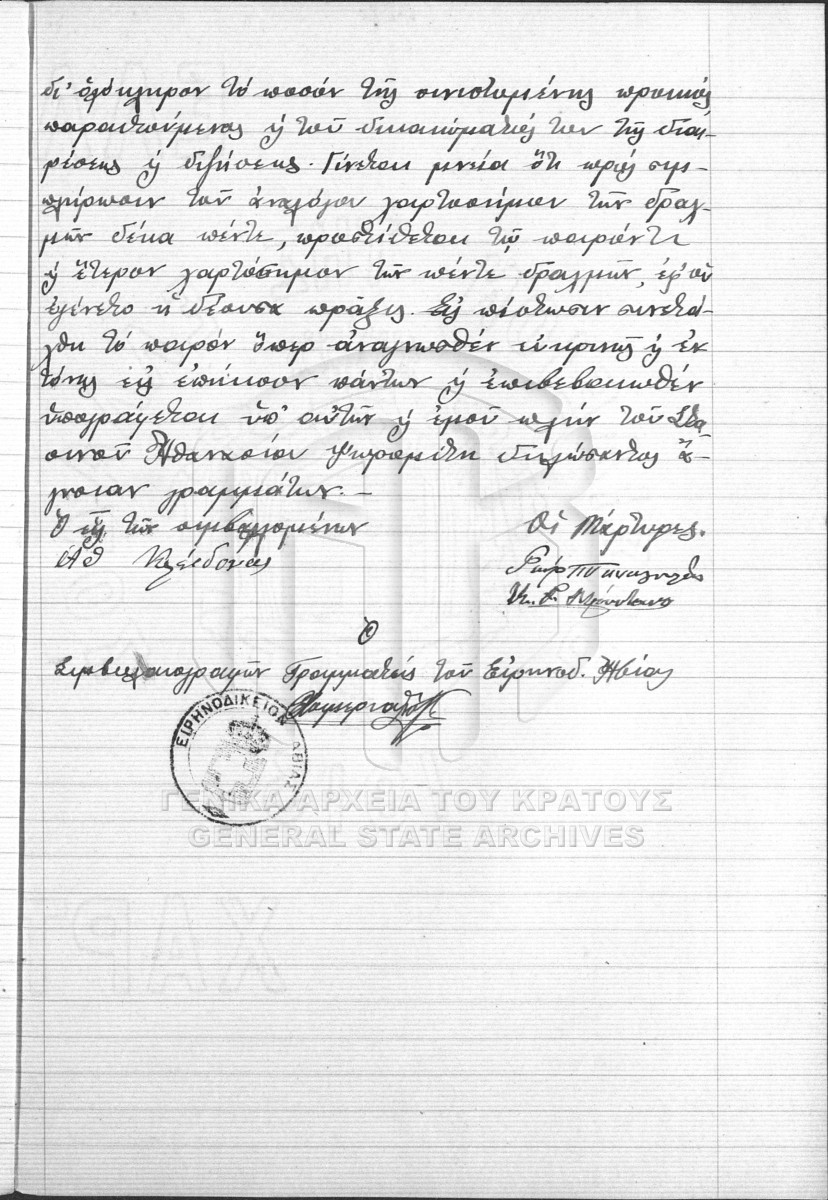 δι' ὁλόκληρον τὸ ποσὸν τῆς συνιστωμένης προικός
παραιτούμενος ἢ τοῦ δικαιώματός των τῆς διαι-
ρέσεως ἢ διζήσεως. Γίνεται μνεία ὅτι πρὸς συμ-
πλήρωσιν τοῦ ἀναλόγου χαρτοσήμου τῶν δραχ-
μῶν δέκα πέντε, προστίθεται τῷ παρόντι
ἢ ἕτερον χαρτόσημον τῶν πέντε δραχμῶν, ἐφ' οὗ
ἐγένετο ἡ δέουσα πρᾶξις. Εἰς πίστωσιν συνετά-
χθη τὸ παρὸν ὅπερ ἀναγνωσθὲν εὐκρινῶς ἢ ἐκ
τόνως εἰς ἐπήκοον πάντων ἢ ἐπιβεβαιωθὲν
ὑπογράφεται ὑπ' αὐτῶν ἢ ἐμοῦ πλὴν τοῦ
Ἀθανασίου δηλώσαντος ἄ-
γνοιαν γραμμάτων. –
Ὁ εἷς τῶν συμβαλλομένων
Οἱ Μάρτυρες.
Ἀθ
Ὁ
Συμβολαιογραφῶν Γραμματεὺς τοῦ Εἰρηνοδ. Ἀβίας
ΕΙΡΗΝΟΔΙΚΕΙΟΝ ΑΒΙΑΣ
ΓΕΝΙΚΑ ΑΡΧΕΙΑ ΤΟΥ ΚΡΑΤΟΥΣ
GENERAL STATE ARCHIVES
ΧΑΡ